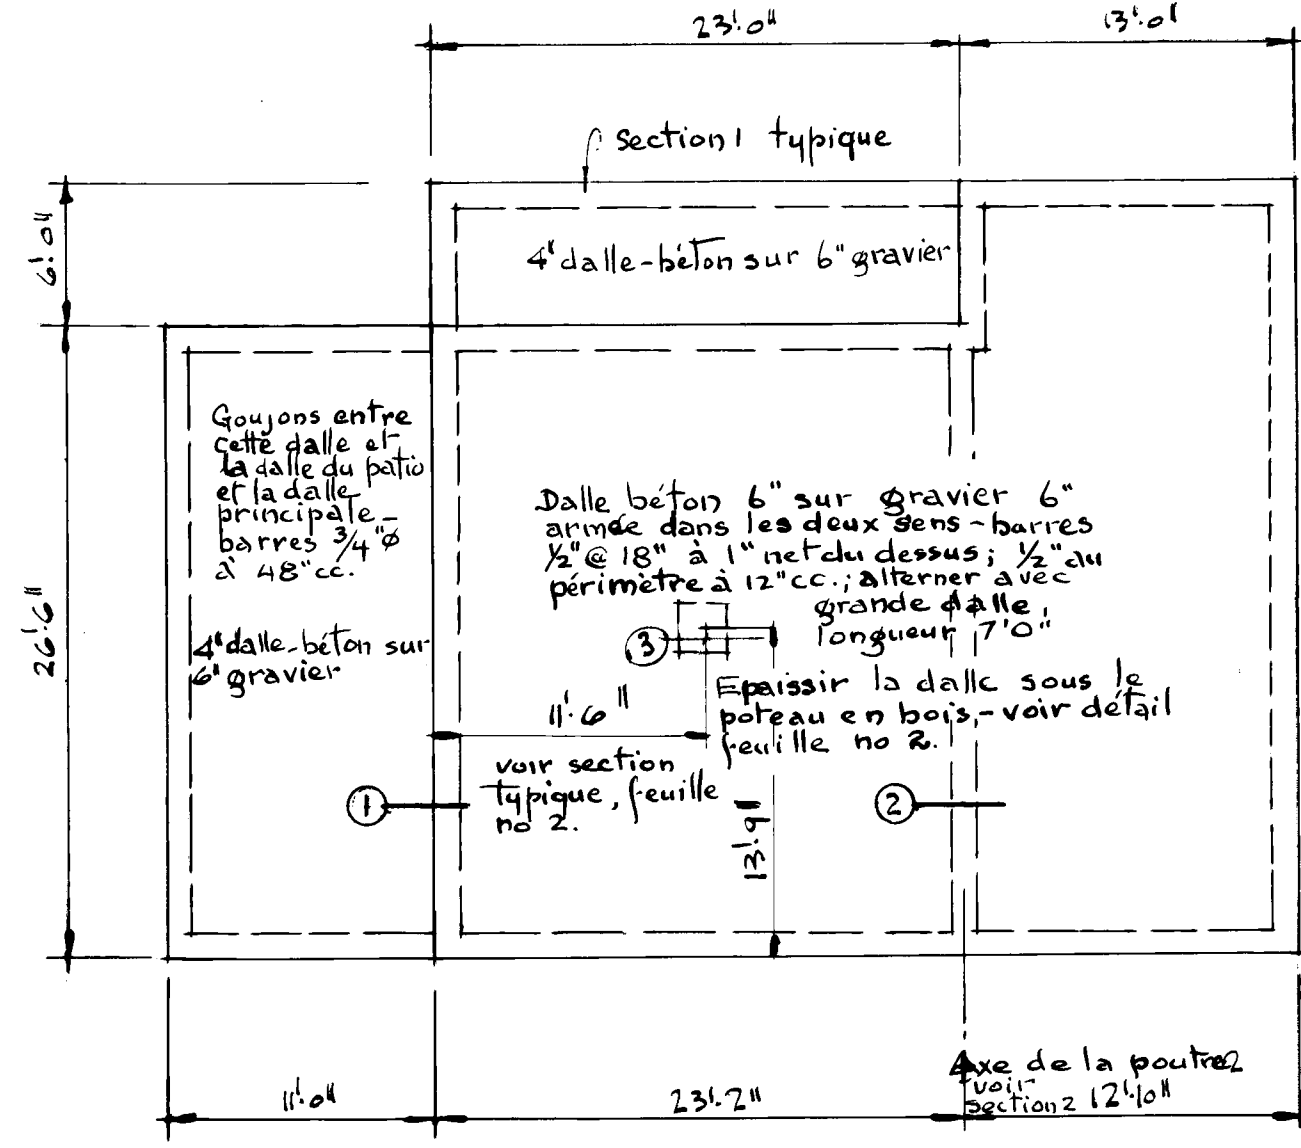 23'.0"
13'.0"
section 1 typique
6'.0"
4" dalle-béton sur 6" gravier
Goujons entre
cette dalle et
la dalle du patio
et la dalle
principale -
barres 3/4"ø
à 48"cc.
Dalle béton 6" sur gravier 6"
armée dans les deux sens - barres
½"@ 18" à 1" net du dessus; ½" au
périmètre à 12"cc.; alterner avec
grande dalle,
longueur 7'0"
26'.6"
4" dalle-béton sur
6" gravier
3
Epaissir la dalle sous le
poteau en bois, - voir détail
feuille no 2.
11'.6"
voir section
typique, feuille
no 2.
1
2
13'.9"
Axe de la poutre 2
voir
section 2
11'.0"
23'.2"
12'.10"